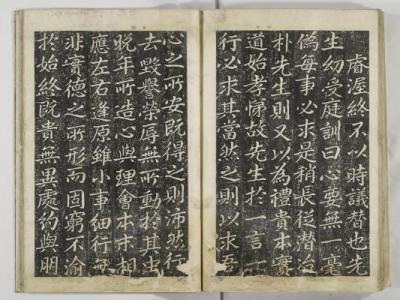 睿渥終不以時議替也先
生幼受庭訓曰心要無一毫
偽每事必求是稍長從潛冶
朴先生則又以為禮貴本實
道始孝悌故先生於一言一
行必求其當然之則以求吾
心之所安既得之則沛然行
去毀譽榮辱無所動於其中
晚年所造心與理會本末相
應左右逢原雖小事細行無
非實德之所形而固窮不渝
於始終既貴無異處約與朋